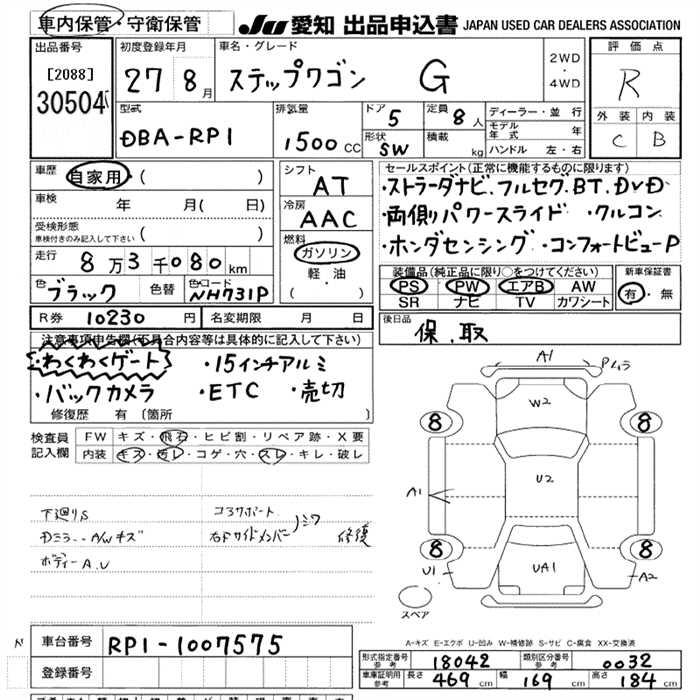 車内保管・守衛保管
JU 愛知 出品申込書 JAPAN USED CAR DEALERS ASSOCIATION
出品番号 初度登録年月 車名・グレード 2WD ・ 4WD 評価点
[2088] 27 8月 ステップワゴン G R
30504
型式 排気量 ドア 5 定員 8人 ディーラー・並行 外装 内装
DBA-RP1 1500CC 形状 SW 積載 kg モデル年式 年 C B
ハンドル 左・右
車歴 自家用・( ) シフト AT セールスポイント(正常に機能するものに限ります)
車検 年 月( 日) 冷房 AAC ・ストラーダナビ、フルセグ、BT、DVD
受検形態 車検付きのみ記入して下さい ( ) 燃料 ・両側パワースライド ・クルコン
走行 8万3千080km ガソリン ・ホンダセンシング ・コンフォートビューP
色 ブラック 色替 色・コード NH731P 軽・油 ( )
装備品(純正品に限り○をつけてください) 新車保証書
PS PW エアB AW 有・無
SR ナビ TV カワシート
R券 10230円 名変期限 月 日 後日品
保、取
注意事項申告欄(不具合内容等は具体的に記入して下さい)
・わくわくゲート ・15インチアルミ
・バックカメラ ・ETC ・売切
修復歴 有 〔箇所 〕
検査員記入欄 FW キズ・飛石・ヒビ割・リペア跡・X要
内装 キズ・汚レ・コゲ・穴・スレ・キレ・破レ
下廻りS コアサポート
右Fサイドメンバー 修復
A/Wキズ
ボディーA.U
A1
W2
8 8
A1 U2
8 8
U1 UA1 A2
スペア
A-キズ E-エクボ U-凹み W-補修跡 S-サビ C-腐食 XX-交換済
車台番号 RP1-1007575
登録番号
型式指定番号 参考 18042 類別区分番号 参考 0032
車庫証明用 参考 長さ 469cm 幅 169cm 高さ 184cm